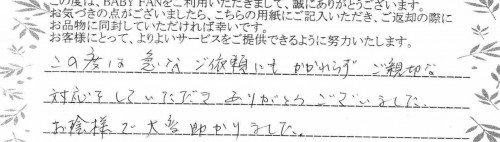 この度は、BABY FANをご利用いただきまして、誠にありがとうございます。
お気づきの点がございましたら、こちらの用紙にご記入いただき、ご返却の際に
お品物に同封していただければ幸いです。
お客様にとって、よりよいサービスをご提供できるように努力いたします。
この度は 急な ご依頼にも かかわらず ご親切な
対応をしていただき ありがとうございました。
お陰様で 大変助かりました。